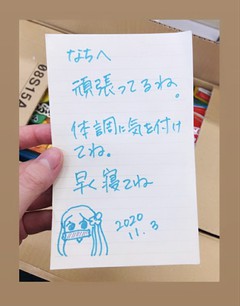 なちへ
頑張ってるね。
体調に気を付け
てね。
早く寝てね
2020
11.3
08S15A